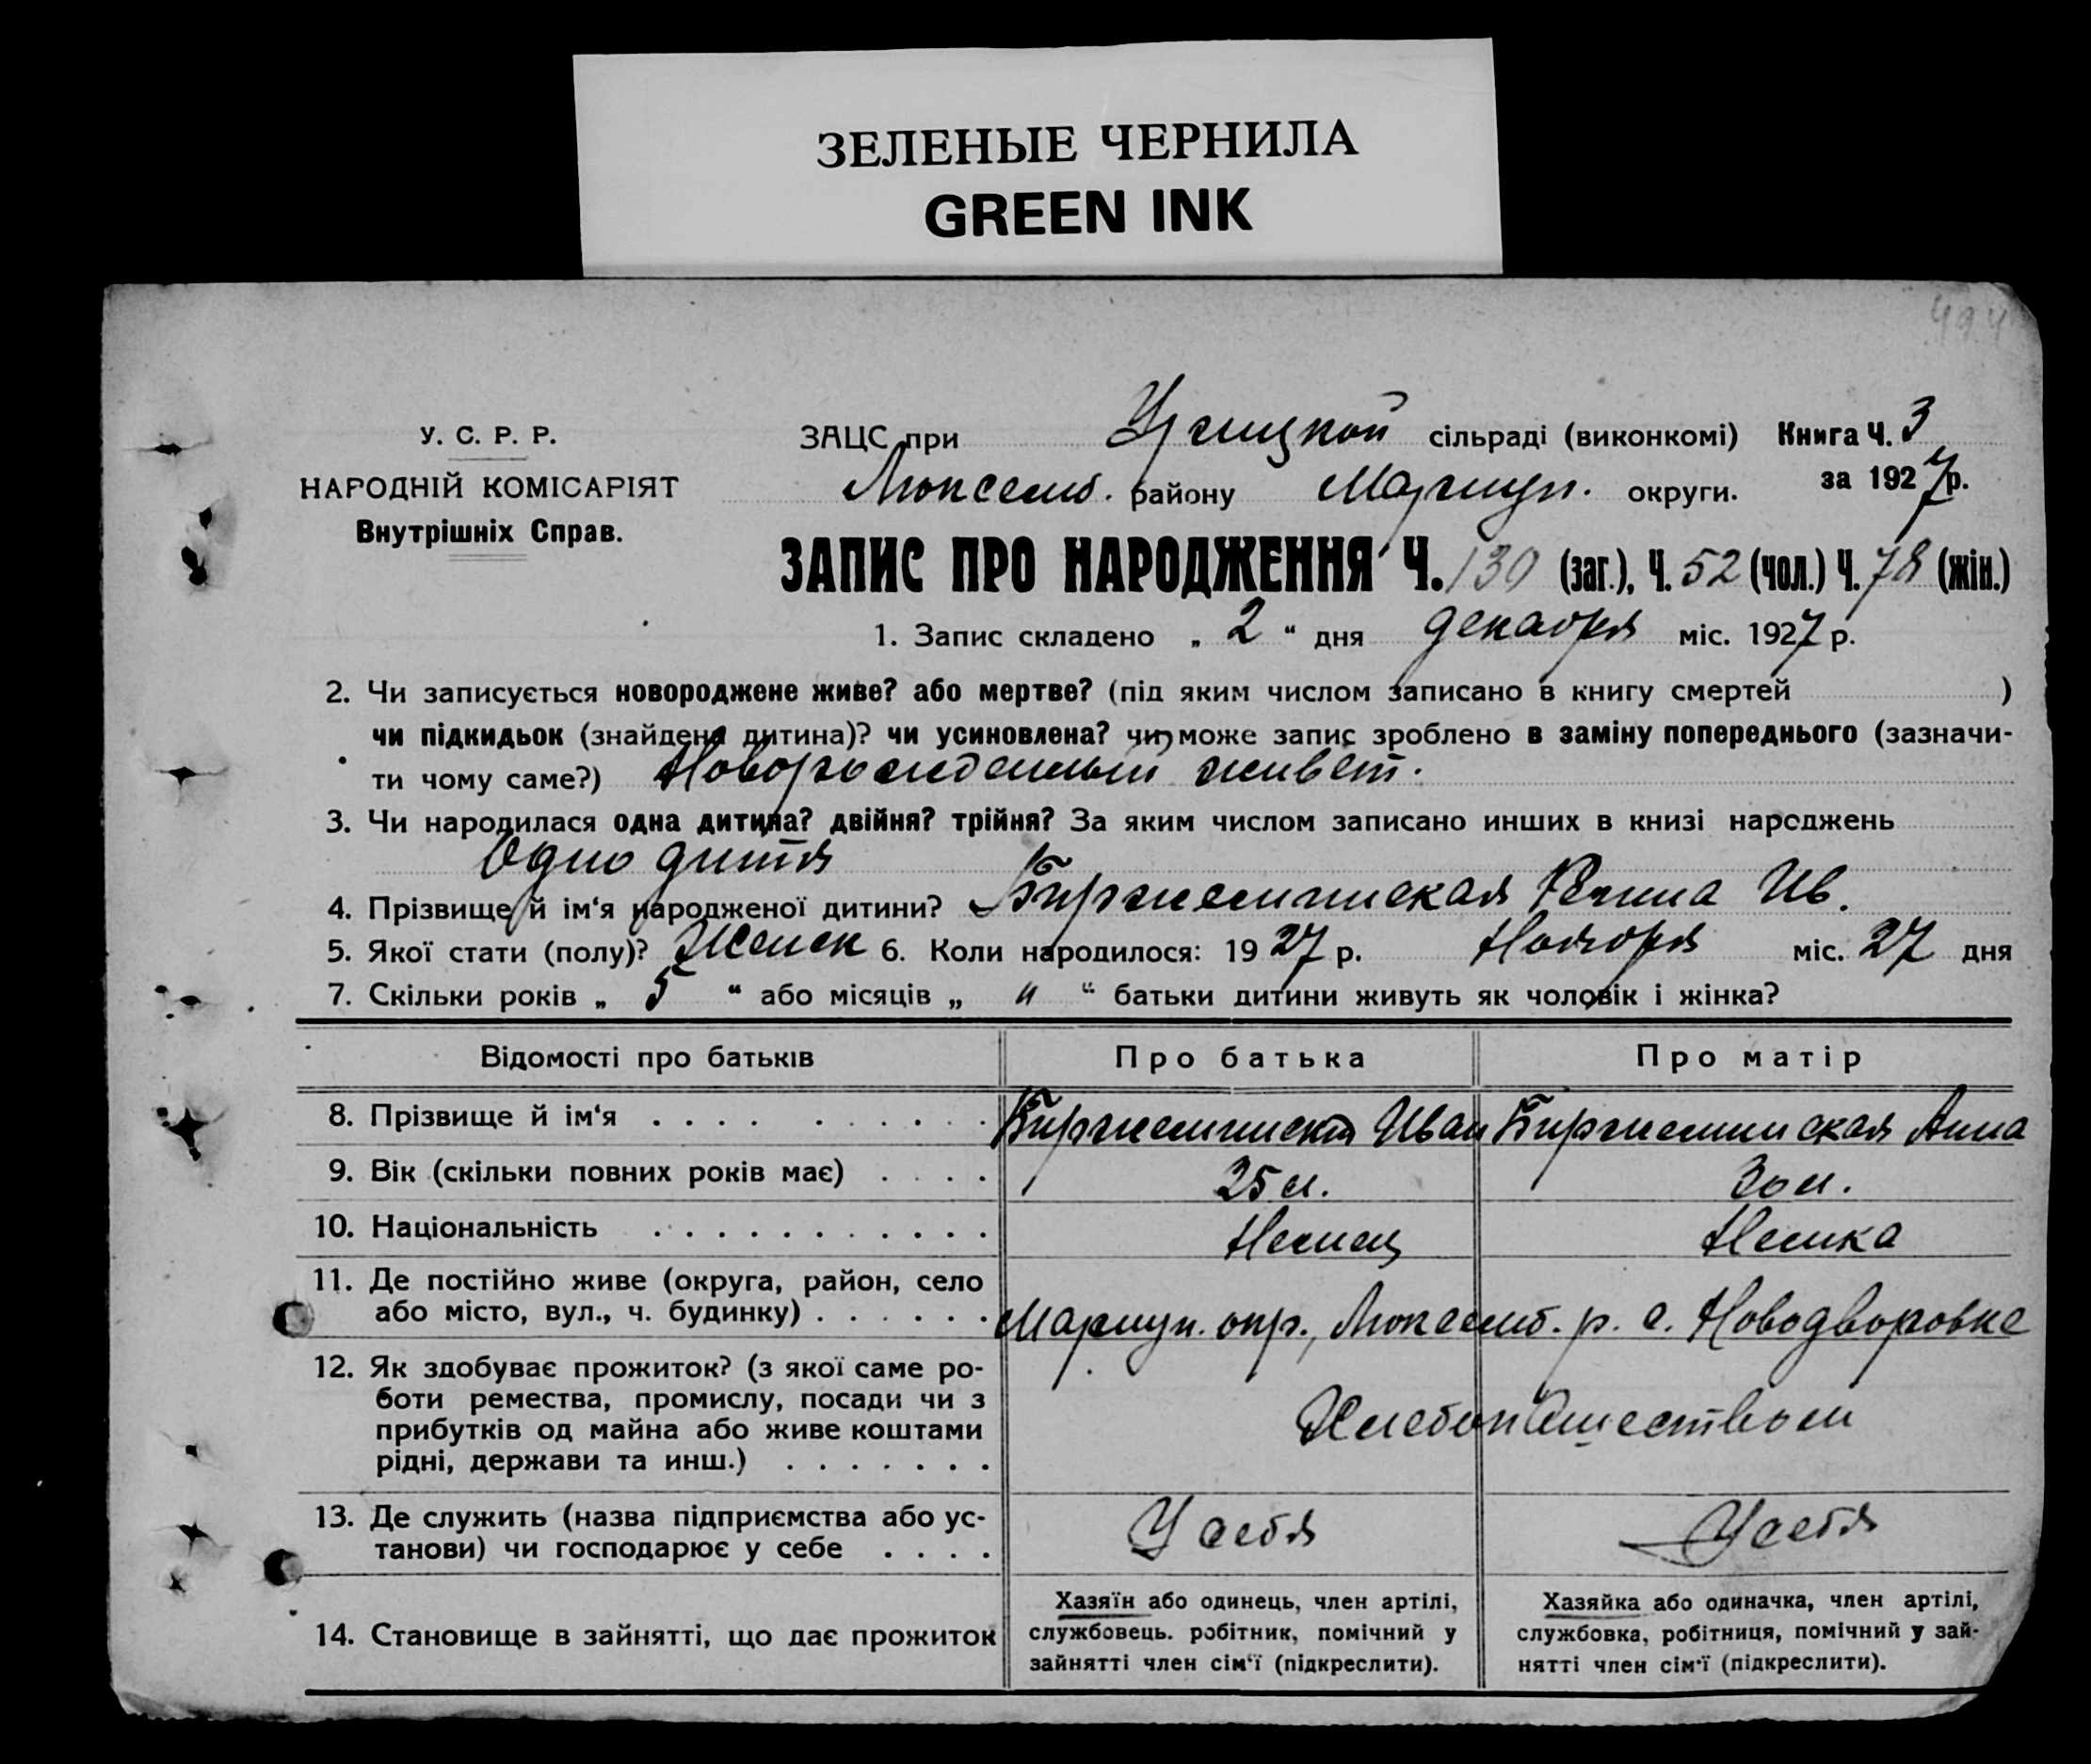 494
ЗЕЛЕНЫЕ ЧЕРНИЛА
GREEN INK
У. С. Р. Р.
НАРОДНІЙ КОМІСАРІЯТ
Внутрішніх Справ.
ЗАЦС при Урицкой сільраді (виконкомі) Книга Ч. 3
Люксемб. району Мариуп. округи. за 1927 р.
ЗАПИС ПРО НАРОДЖЕННЯ Ч. 130 (заг.), Ч. 52 (чол.) Ч. 78 (жін.)
1. Запис складено „ 2 “ дня декабря міс. 1927 р.
2. Чи записується новороджене живе? або мертве? (під яким числом записано в книгу смертей )
чи підкидьок (знайдена дитина)? чи усиновлена? чи може запис зроблено в заміну попереднього (зазначи-
ти чому саме?) Новорожденный живет.
3. Чи народилася одна дитина? двійня? трійня? За яким числом записано инших в книзі народжень
Одно дитя
4. Прізвище й ім‘я народженої дитини? Ив.
5. Якої стати (полу)? Женск 6. Коли народилося: 1927 р. Ноября міс. 27 дня
7. Скільки років „ 5 “ або місяців „ " “ батьки дитини живуть як чоловік і жінка?
Відомості про батьків Про батька Про матір
8. Прізвище й ім‘я . . . . . . . . . . Иван Анна
9. Вік (скільки повних років має) . . . . 25 л. 30 л.
10. Національність . . . . . . . . . . . Немец Немка
11. Де постійно живе (округа, район, село
або місто, вул., ч. будинку) . . . . . . Мариуп. окр., Люксемб. р. с. Новодворовке
12. Як здобуває прожиток? (з якої саме ро-
боти ремества, промислу, посади чи з
прибутків од майна або живе коштами
рідні, держави та инш.) . . . . . . .
Хлебопашеством
13. Де служить (назва підприємства або ус-
танови) чи господарює у себе . . . .
У себя У себя
14. Становище в зайнятті, що дає прожиток
Хазяїн або одинець, член артілі,
службовець. робітник, помічний у
зайнятті член сім‘ї (підкреслити).
Хазяйка або одиначка, член артілі,
службовка, робітниця, помічний у зай-
нятті член сім‘ї (підкреслити).